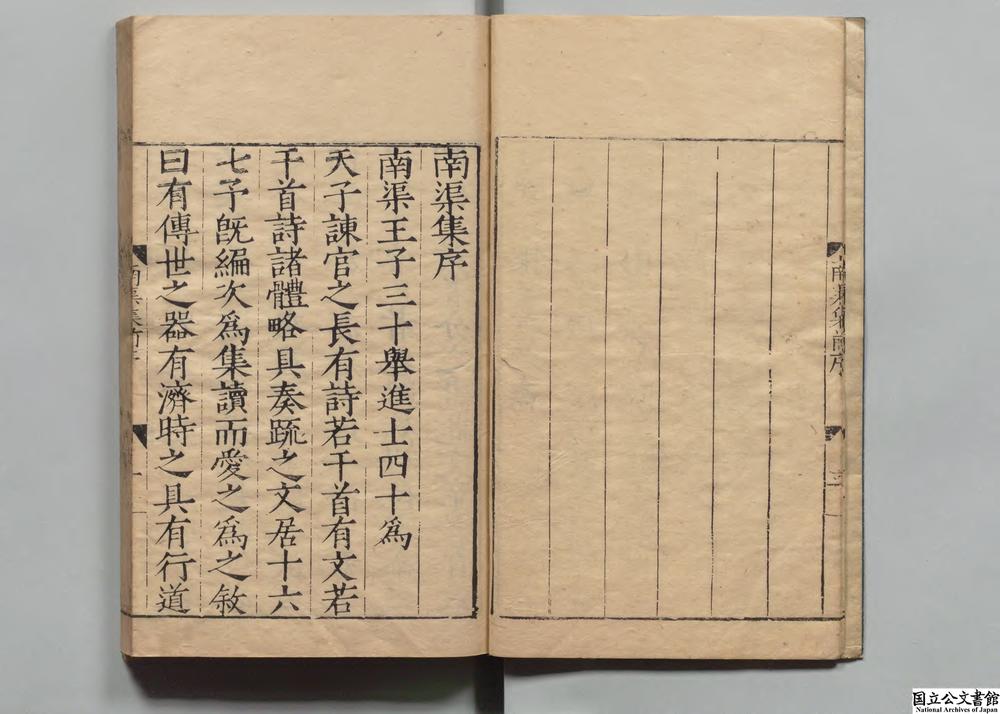 南渠集序
南渠王子三十舉進士四十爲
天子諫官之長有詩若干首有文若
干首詩諸體略具奏疏之文居十六
七予既編次爲集讀而愛之爲之敘
曰有傳世之器有濟時之具有行道
南渠集前序
三
一
国立公文書館
National Archives of Japan